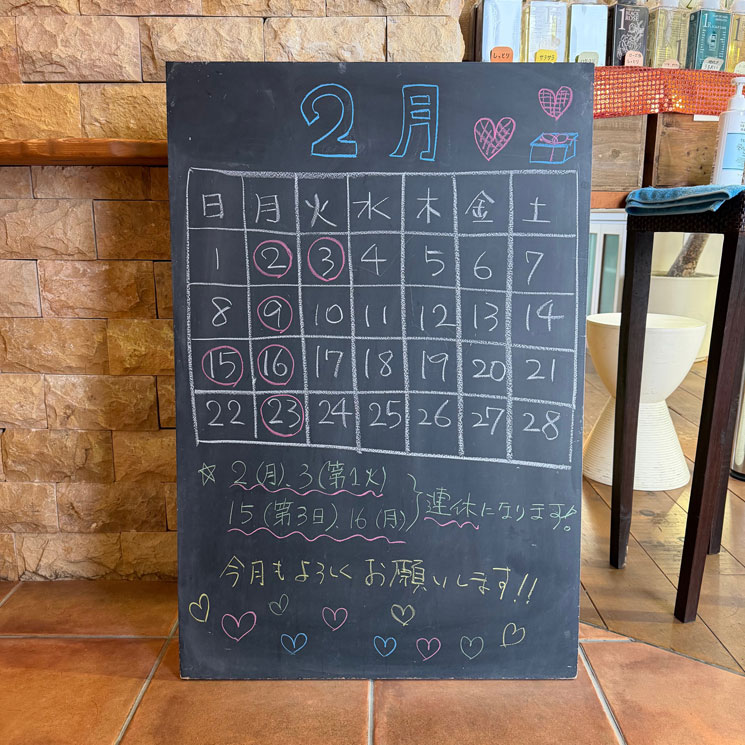 しっとり
サラサラ
2月
日 月 火 水 木 金 土
1 2 3 4 5 6 7
8 9 10 11 12 13 14
15 16 17 18 19 20 21
22 23 24 25 26 27 28
☆ 2(月)、3(第1火)
15(第3日)、16(月)
}連休になります!
今月もよろしくお願いします!!